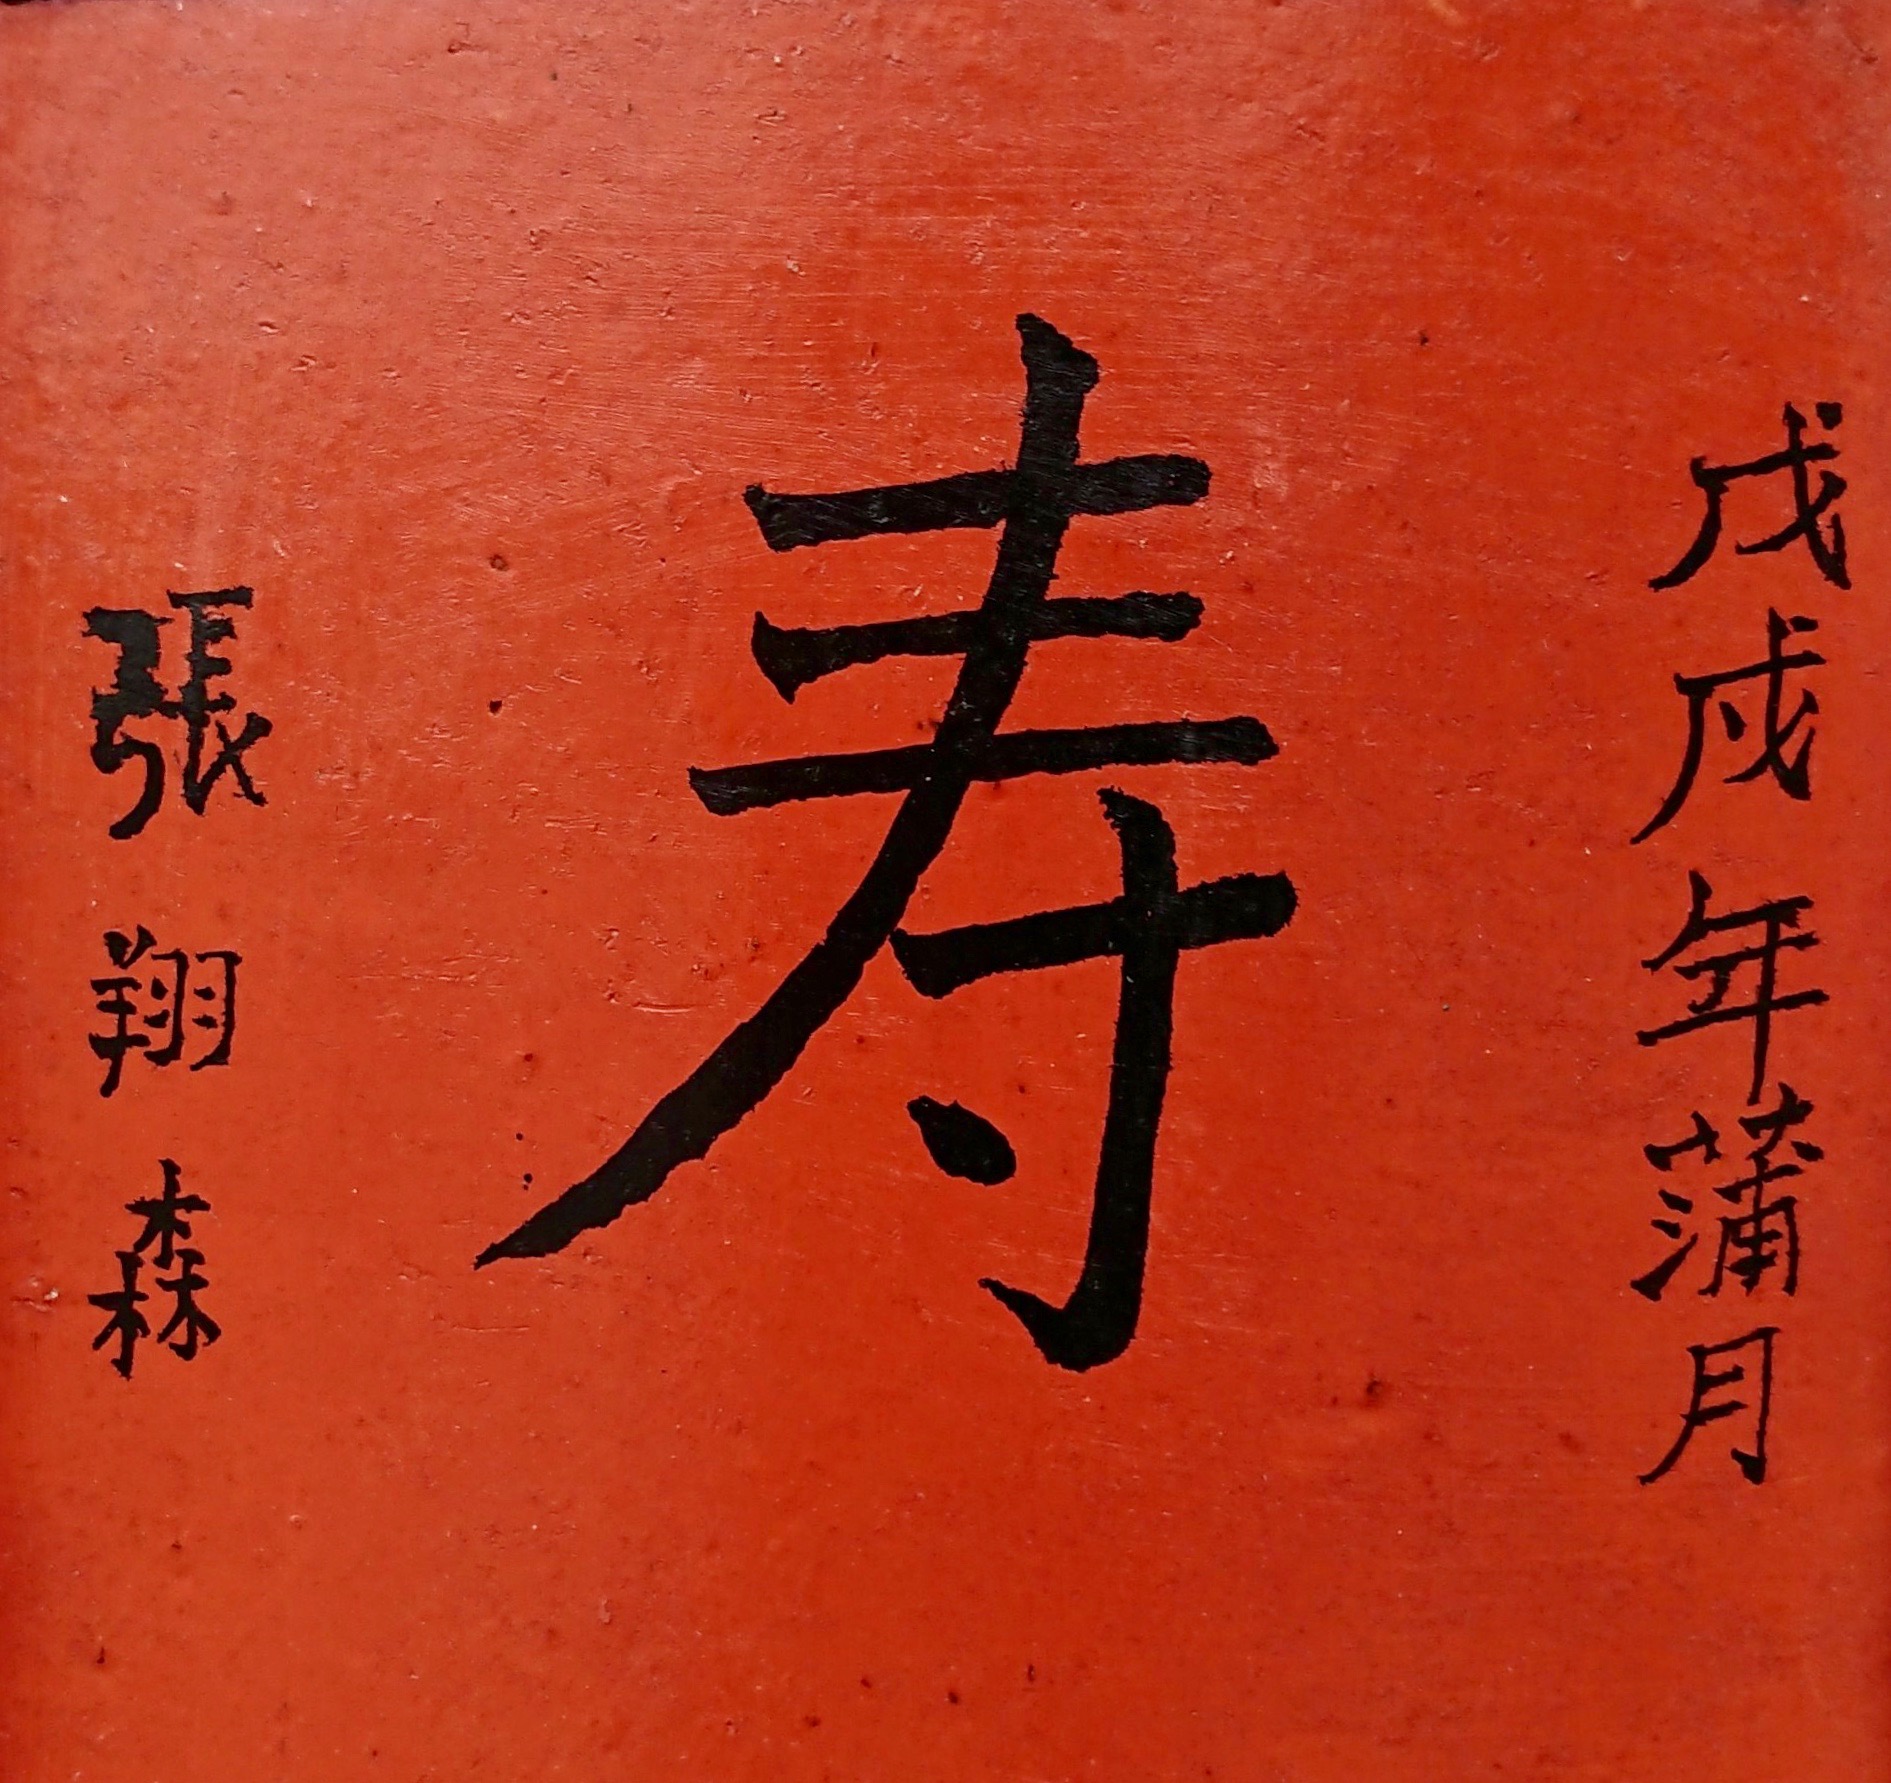 戊戌年蒲月
寿
張翔森